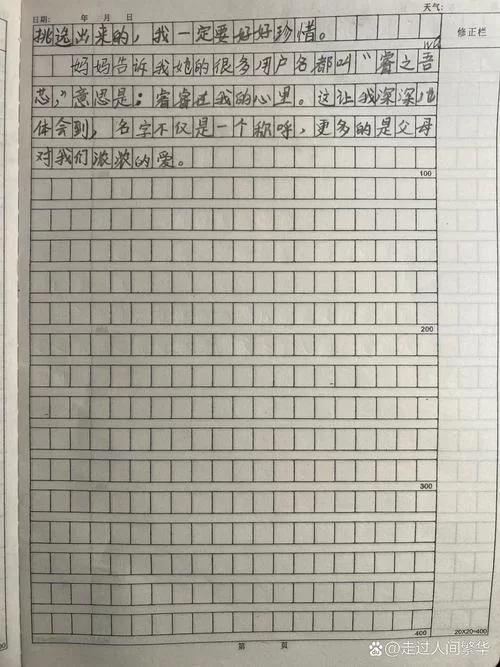 日期: 年 月 日 天气:
修正栏
挑选出来的，我一定要好好珍惜。
wú
妈妈告诉我她的很多用户名都叫“睿之吾
芯，”意思是：睿睿在我的心里。这让我深深地
体会到，名字不仅是一个称呼，更多的是父母
对我们浓浓的爱。
100
200
300
400
20X20=400
第 页
@走过人间繁华